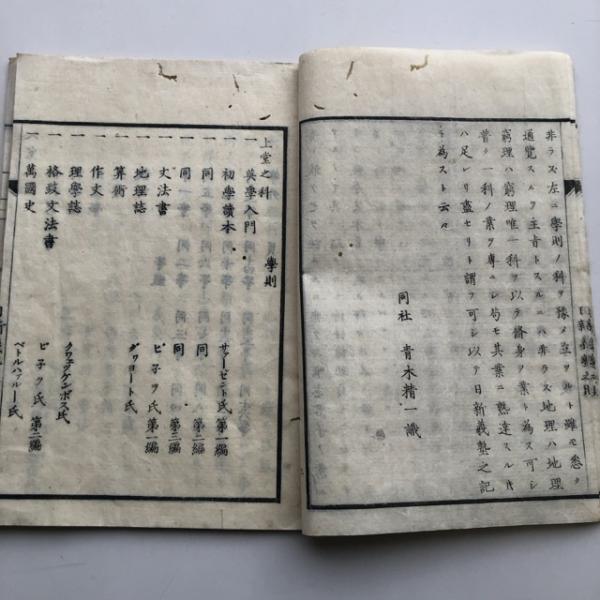 非ラズ左ニ學則ノ科ヲ豫メ立ツルト雖モ悉ク
通覧スルヲ主旨トスルニハ非ラズ地理ハ地理
窮理ハ窮理唯一科ヲ以テ修身ノ業ト為ス可シ
昔ヨリ一科ノ業ヲ專ニシ苟モ其業ニ熟達スル
ハ足レリ盡セリト謂フ可シ以テ日新義塾之記
ト為スト云々
同社 青木精一識
學則
上堂之科
一 英學入門
一 初學讀本 サァーゼント氏第一編
一 同 同 第二編
一 同 同 第三編
一 文法書 ピ子ヲ氏第一編
一 地理誌 グヮヨート氏
一 算術
一 作文
一 理學誌 クヮッケンボス氏
一 格致文法書 ピ子ヲ氏 第二編
一 萬國史 ペートルパァルー氏